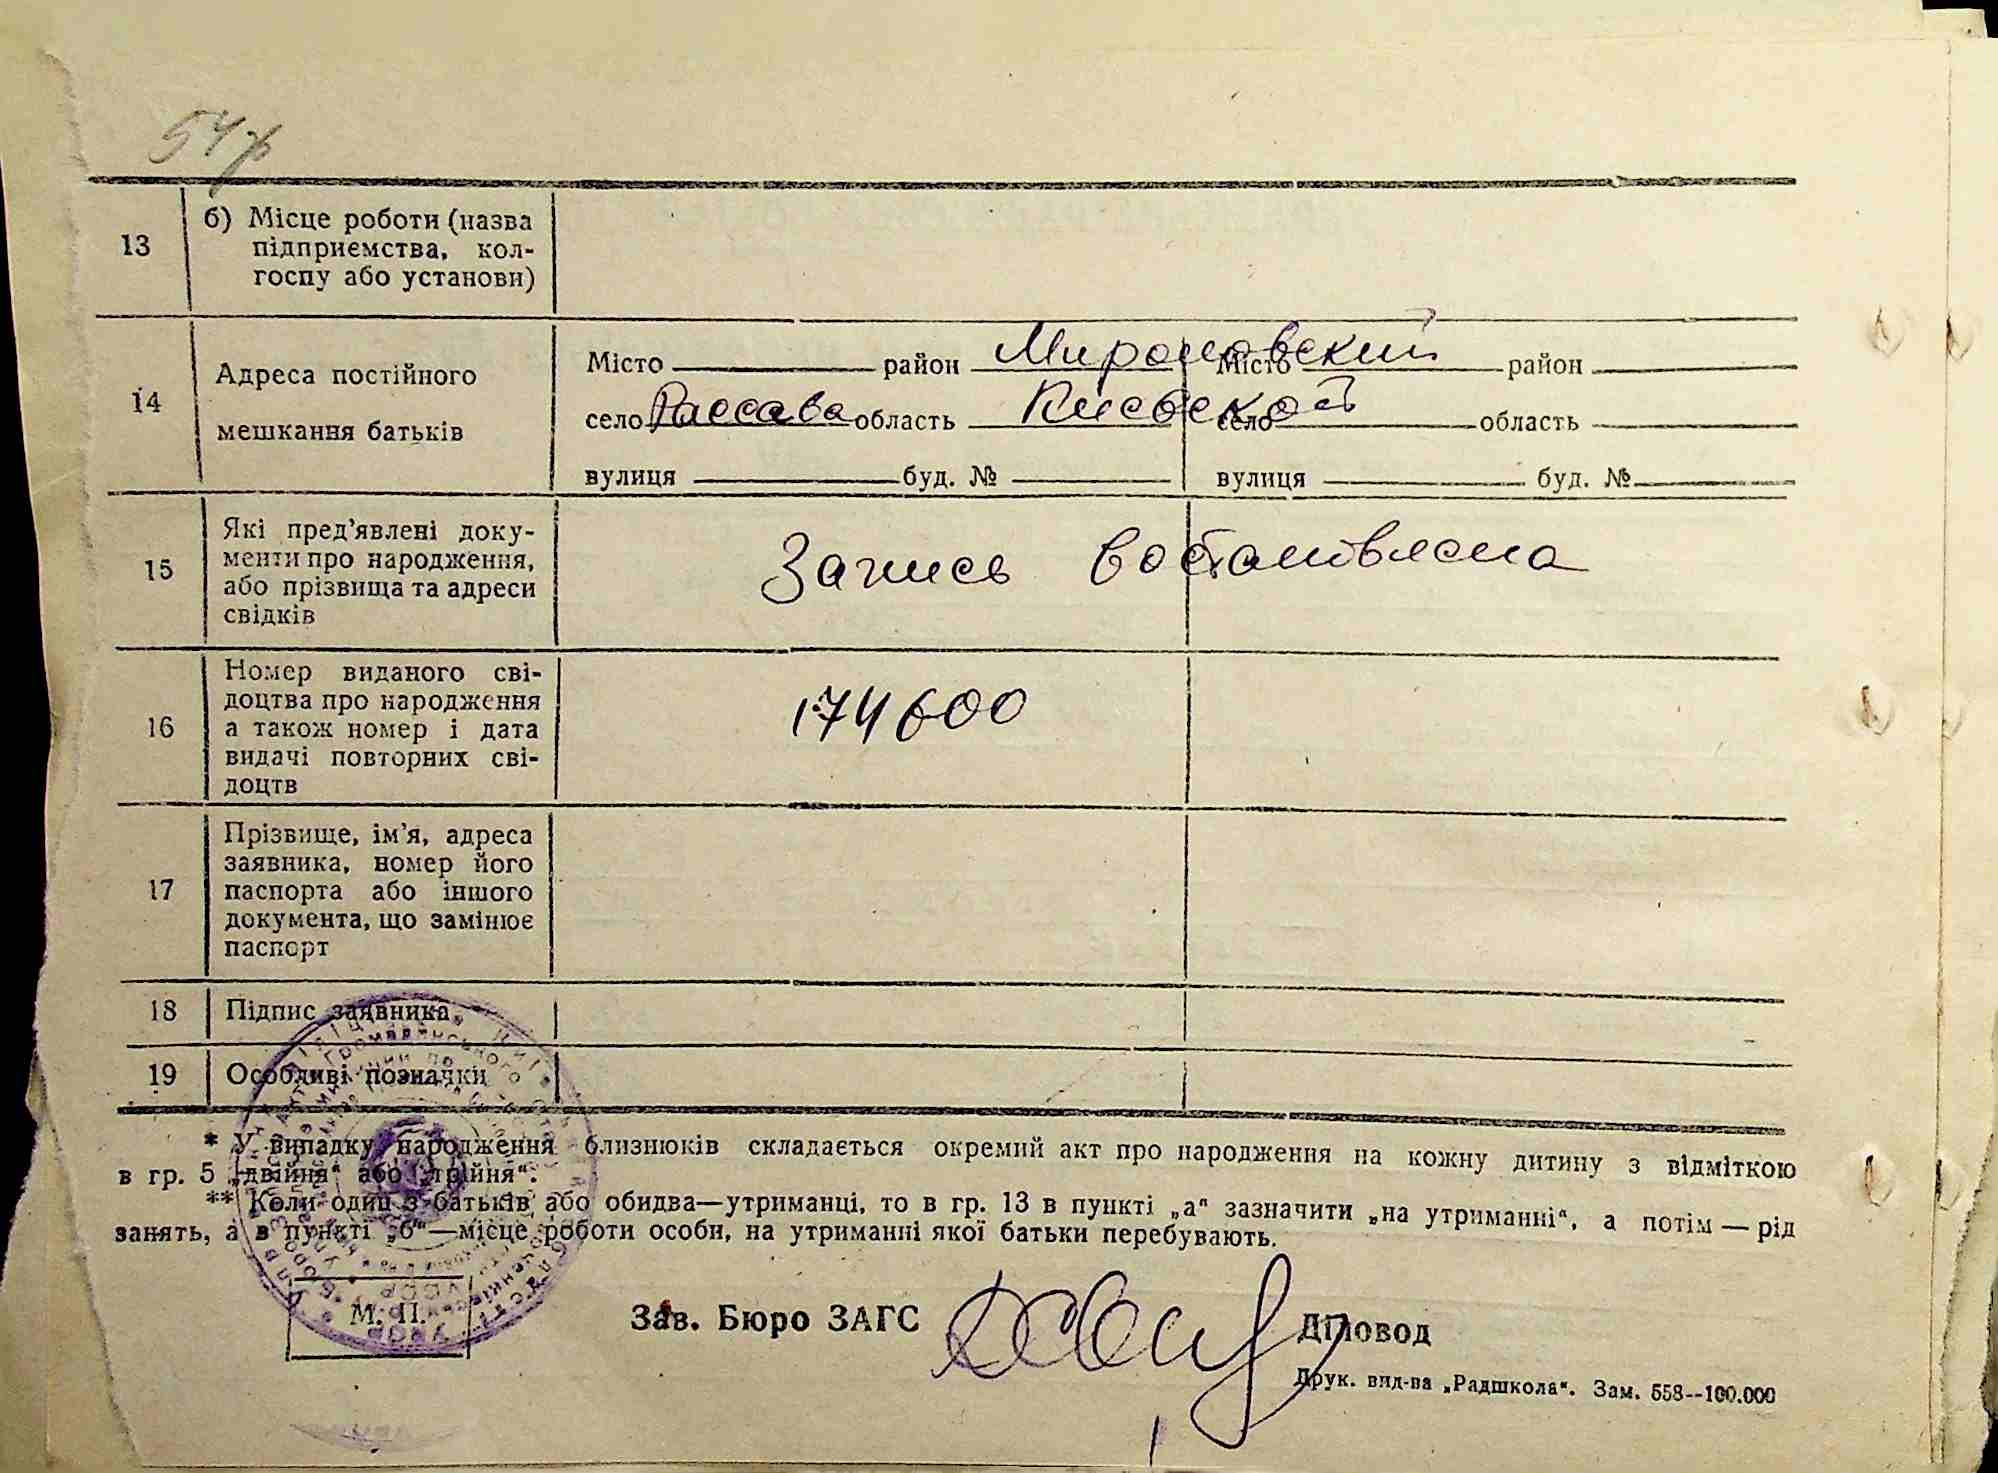 54
13
б) Місце роботи (назва
підприємства, кол-
госпу або установи)
14
Адреса постійного
мешкання батьків
Місто район Мироновский
село Рассава область Киевской
вулиця буд. №
Місто район
село область
вулиця буд. №
15
Які пред'явлені доку-
менти про народження,
або прізвища та адреси
свідків
Запись востановлена
16
Номер виданого сві-
доцтва про народження
а також номер і дата
видачі повторних сві-
доцтв
174600
17
Прізвище, ім'я, адреса
заявника, номер його
паспорта або іншого
документа, що замінює
паспорт
18
Підпис заявника
19
Особливі позначки
* У випадку народження близнюків складається окремий акт про народження на кожну дитину з відміткою
в гр. 5 „двійня“ або „трійня“.
** Коли один з батьків або обидва—утриманці, то в гр. 13 в пункті „а“ зазначити „на утриманні“, а потім — рід
занять, а в пункті „б“—місце роботи особи, на утриманні якої батьки перебувають.
М. П.
Зав. Бюро ЗАГС
Діловод
Друк. вид-ва „Радшкола“. Зам. 558--100.000